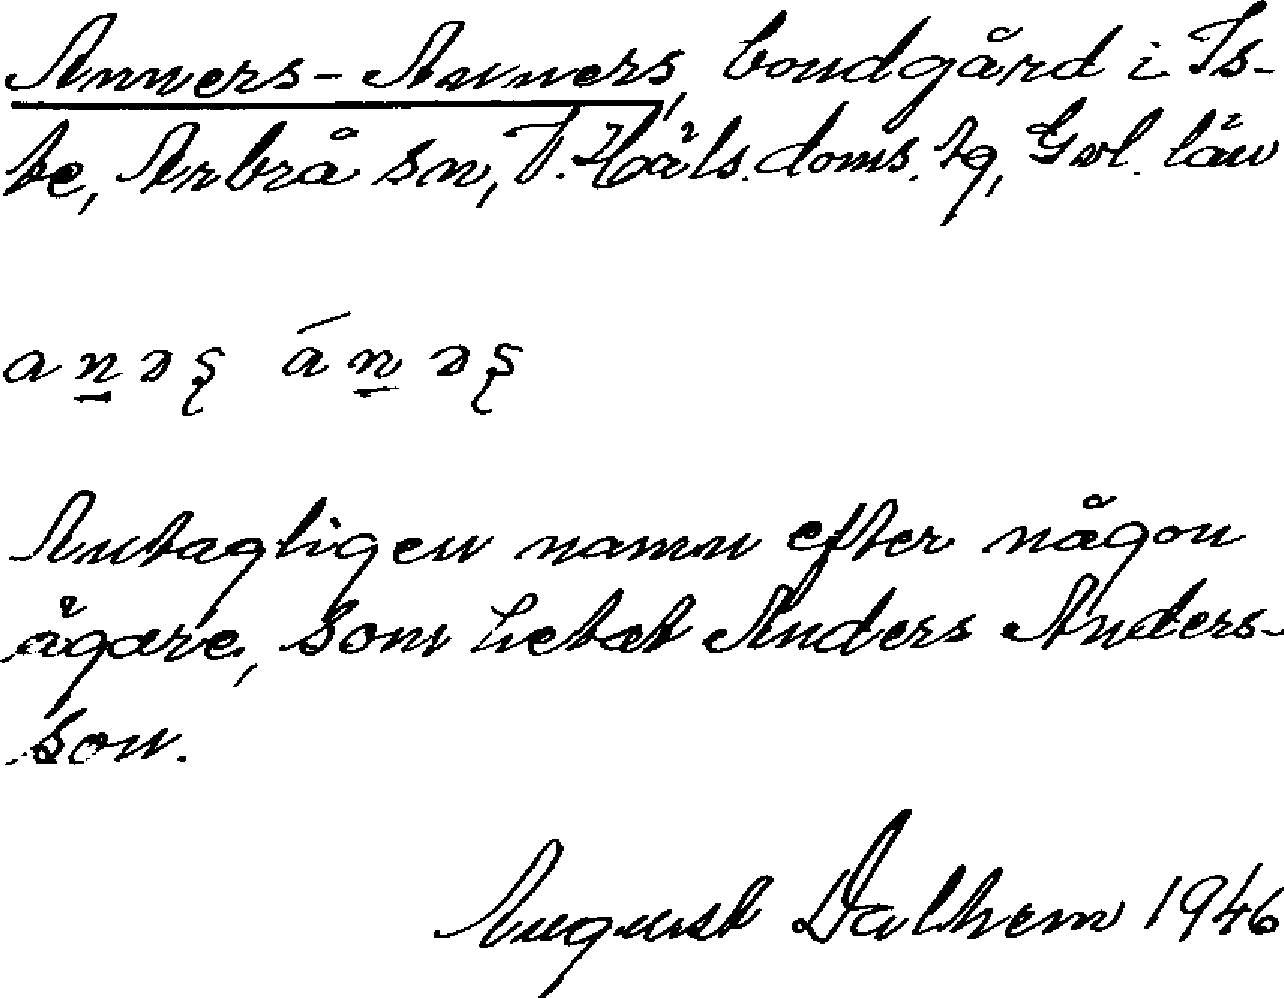 Anners-Anners, bondgård i Is-
te, Arbrå sn, V. Häls. doms. tg, Gvl. län
anəs̨ ánəs̨
Antagligen namn efter någon
ägare, som hetat Anders Anders-
son.
August Dalhem 1946